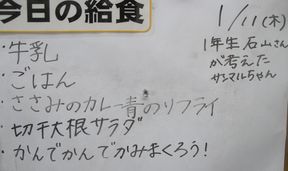 今日の給食
1/11(木)
1年生 石山さん
が考えた
サンマルちゃん
・牛乳
・ごはん
・ささみのカレー青のりフライ
・切干大根サラダ
・かんでかんでかみまくろう!